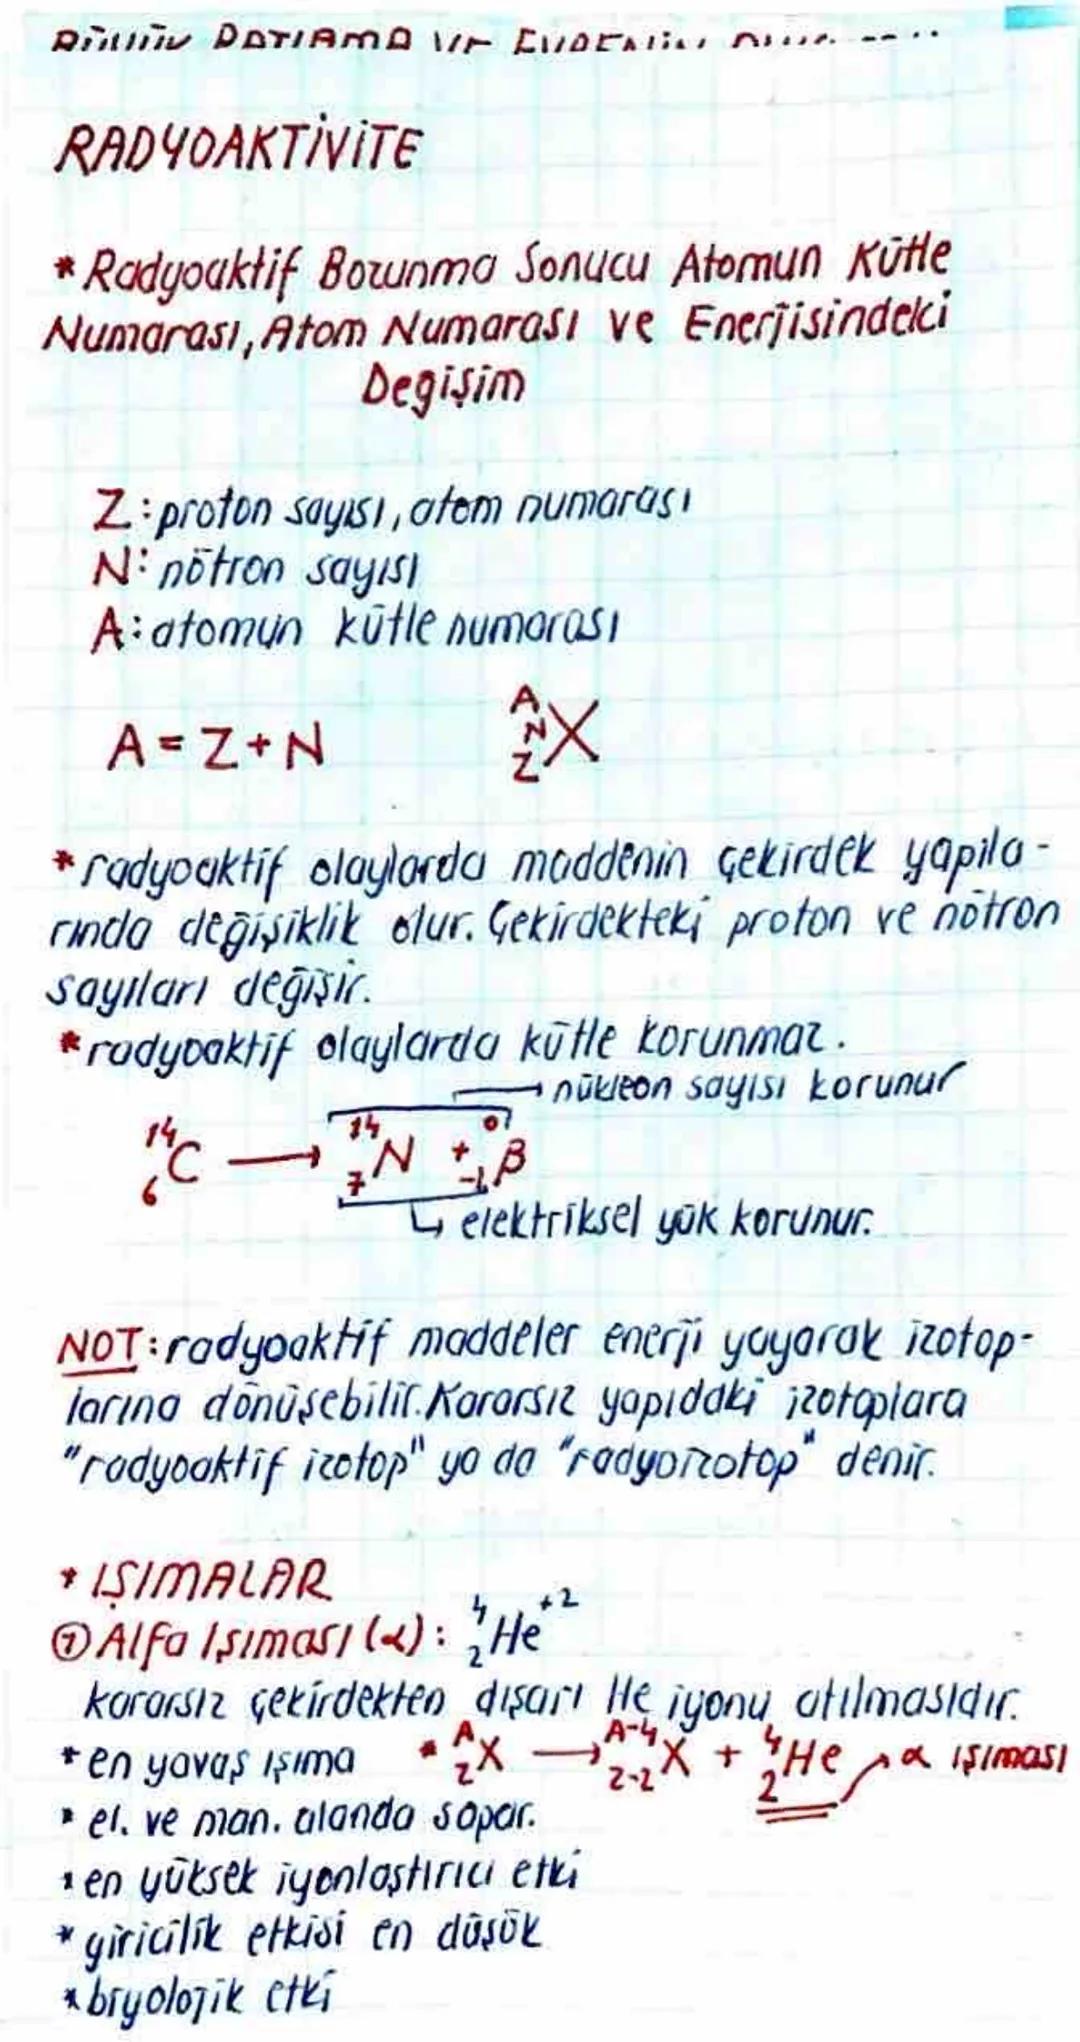 RADYOAKTİVİTE
* Radyoaktif Bozunma Sonucu Atomun Kütle
Numarası, Atom Numarası ve Enerjisindeki
Degişim
Z: proton sayısı, atom numarası
N: nötron sayısı
A: atomun kütle numarası
A = Z + N    A N Z X
* radyoaktif olaylarda maddenin çekirdek yapıla-
rında değişiklik olur. Çekirdekteki proton ve nötron
sayıları değişir.
* radyoaktif olaylarda kütle korunmaz.
→ nükleon sayısı korunur
¹⁴₆C → ¹⁴₇N + ⁰₋₁β
↳ elektriksel yük korunur.
NOT: radyoaktif maddeler enerji yayarak izotop-
larına dönüşebilir. Kararsız yapıdaki izotoplara
"radyoaktif izotop" ya da "radyoizotop" denir.
* IŞIMALAR
① Alfa Işıması (α): ⁴₂He⁺²
kararsız çekirdekten dışarı He iyonu atılmasıdır.
* en yavaş ışıma * ᴬ_Z X → ᴬ⁻⁴_Z-2 X + ⁴₂He → α ışıması
* el. ve man. alanda sapar.
* en yüksek iyonlaştırıcı etki
* giricilik etkisi en düşük
* biyolojik etki